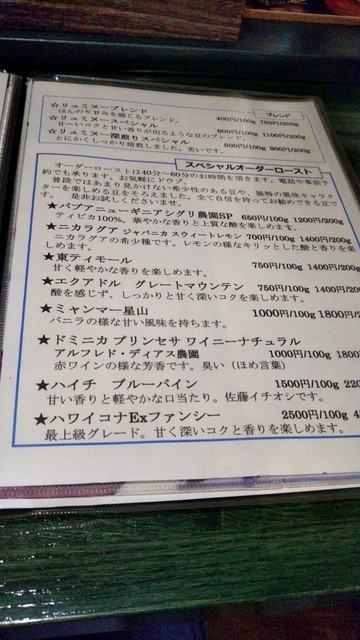 ブレンド
★リュミヌーブレンド 400円/100g 750円/200g
ほんのり甘みを感じるブレンド。
★リュミヌースペシャル 600円/100g 1100円/200g
甘〜いコクと甘い香りが出るような豆のブレンド。
★リュミヌー深煎りスペシャル 500円/100g 900円/200g
とにかくしっかり焙煎しました。苦いです。
スペシャルオーダーロースト
オーダーローストは40分〜60分のお時間を頂きます。電話や事前予
約でも承ります。お気軽にドウゾ。
普段ではあまり見かけない希少性のある豆や、独特の風味キャラク
ターを楽しめる豆をそろえました。全て自信を持ってお勧めできる豆で
す。是非お試しくださいませ。
★パプアニューギニアシグリ農園SP 650円/100g 1200円/200g
ティピカ100%。華やかな香りと上質な酸を楽しめます。
★ニカラグア ジャバニカ スウィートレモン 700円/100g 1400円/200g
ニカラグアの希少種です。レモンの様なキリッとした酸と香りを楽
しめます。
★東ティモール 750円/100g 1400円/200g
甘く軽やかな香りを楽しめます。
★エクアドル グレートマウンテン 750円/100g 1400円/200g
酸を感じず、しっかりと甘く深いコクを楽しめます。
★ミャンマー星山 1000円/100g 1800円/2
バニラの様な甘い風味を持ちます。
★ドミニカ プリンセサ ワイニーナチュラル
アルフレド・ディアス農園 1000円/100g 1800円
赤ワインの様な芳香です。臭い（ほめ言葉）
★ハイチ ブルーパイン 1500円/100g 220
甘い香りと軽やかな口当たり。佐藤イチオシです。
★ハワイコナExファンシー 2500円/100g 4
最上級グレード。甘く深いコクと香りを楽しめます。